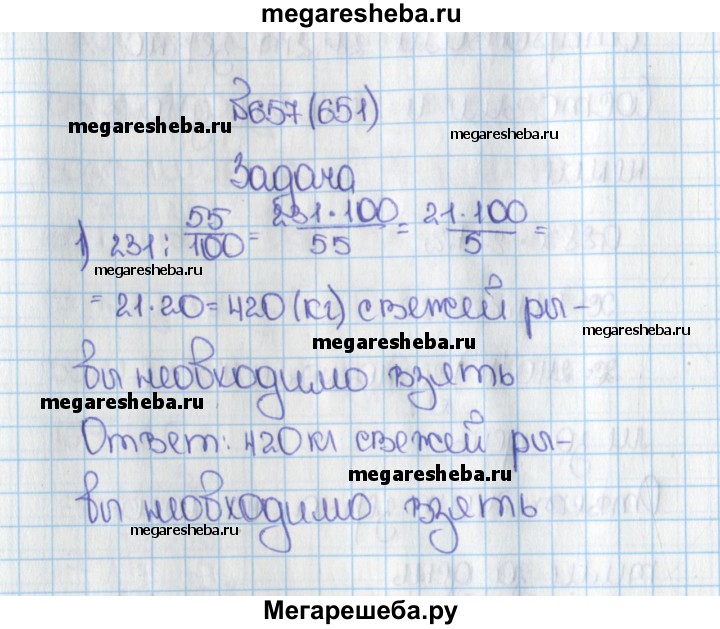 megaresheba.ru
№657(651)
megaresheba.ru
megaresheba.ru
Задача
1) 231 : 55/100 = 231·100/55 = 21·100/5 =
megaresheba.ru
= 21·20 = 420 (кг) свежей ры-
megaresheba.ru
megaresheba.ru
бы необходимо взять
megaresheba.ru
Ответ: 420 кг свежей ры-
megaresheba.ru
бы необходимо взять
megaresheba.ru
megaresheba.ru
Мегарешеба.ру